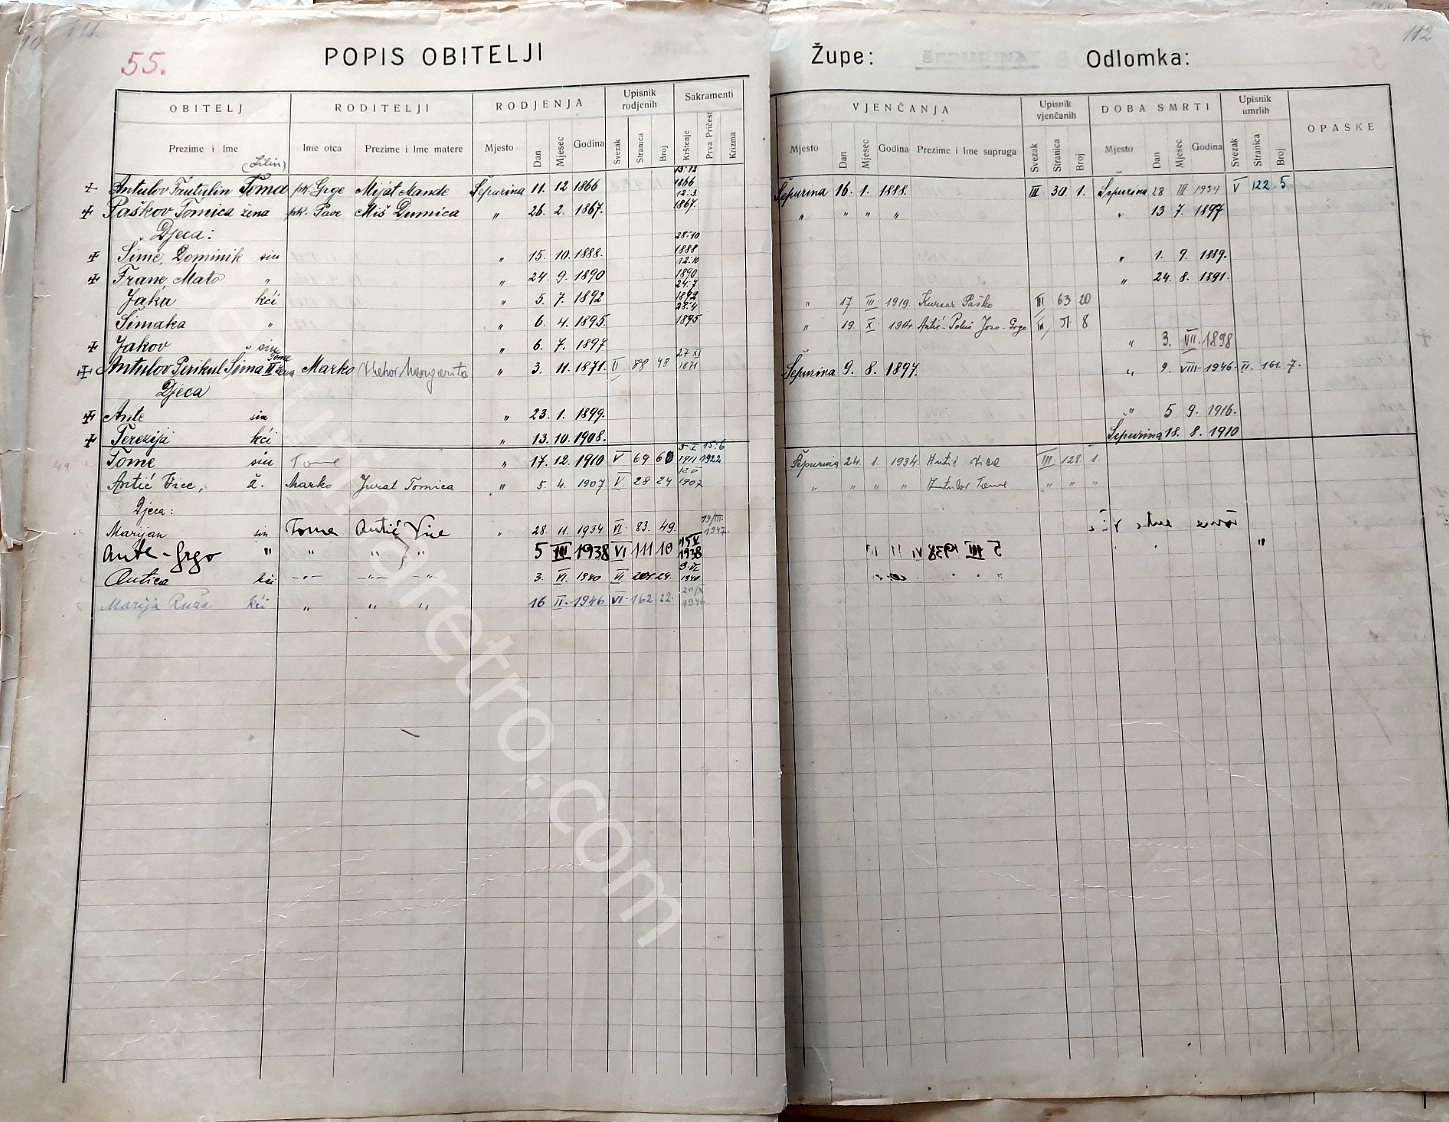 111
112
55.
POPIS OBITELJI
Župe:
Odlomka:
OBITELJ RODITELJI RODJENJA Upisnik rodjenih Sakramenti VJENČANJA Upisnik vjenčanih DOBA SMRTI Upisnik umrlih OPASKE
Prezime i Ime Ime otca Prezime i Ime matere Mjesto Dan Mjesec Godina Svezak Stranica Broj Krštenje Prva Pričest Krizma Mjesto Dan Mjesec Godina Prezime i Ime supruga Svezak Stranica Broj Mjesto Dan Mjesec Godina Svezak Stranica Broj
Antulov Frutulin Toma pk. Grge Mijat Mande Šepurina 11. 12 1866 1866 Šepurina 16. 1. 1888. III 30 1. Šepurina 28 III 1939 V 122 5
Paškov Tomica žena pk. Pave Miš Dumica " 26. 2. 1867. 12.3. 1867. " " " " " 13 7. 1897
Djeca:
Šime, Dominik sin " 15. 10. 1888. 28.10 1888 " 1. 9. 1889.
Frane, Mato " " 24. 9. 1890 12.10 1890 " 24. 8. 1891.
Jaka kći " 5. 7. 1892 24.7 1892 " 17 III 1919 Kursar Paško III 63 20
Šimaka " " 6. 4. 1895. 28.4 1895 " 19. X. Antić Jozo-Grgo 8
Jakov sin " 6. 7. 1897 " 3. VII. 1898
Antulov Pirikul Šima II žena Marko Margarita " 3. 11. 1871. II 88 48 27 XI 1871 Šepurina 9. 8. 1897. " 9. VIII 1946. II. 161. 7.
Djeca
Ante sin " 23. 1. 1899. " 5 9. 1916.
Terezija kći " 13. 10. 1908. Šepurina 18. 8. 1910
Tome sin Tome " 17. 12. 1910 V 69 60 1911 15.6 1922 Šepurina 24. 1. 1934 Antić Vice III 128 1
Antić Vice, ž. Marko Jurat Tomica " 5 4. 1907 V 28 24 1907 " " " " Antulov Tome " " "
Djeca:
Marijan sin Tome Antić Vice 28 11. 1934 VI 83. 49. 19/III 1947.
Ante-Grgo " " " " 5 III 1938 VI 111 10 15 V 1938
Antica kći " " " 3. VI. 1940 VI 24. 1940
Marija Ruža kći " " " 16 II. 1946 VI 162 22. 1946